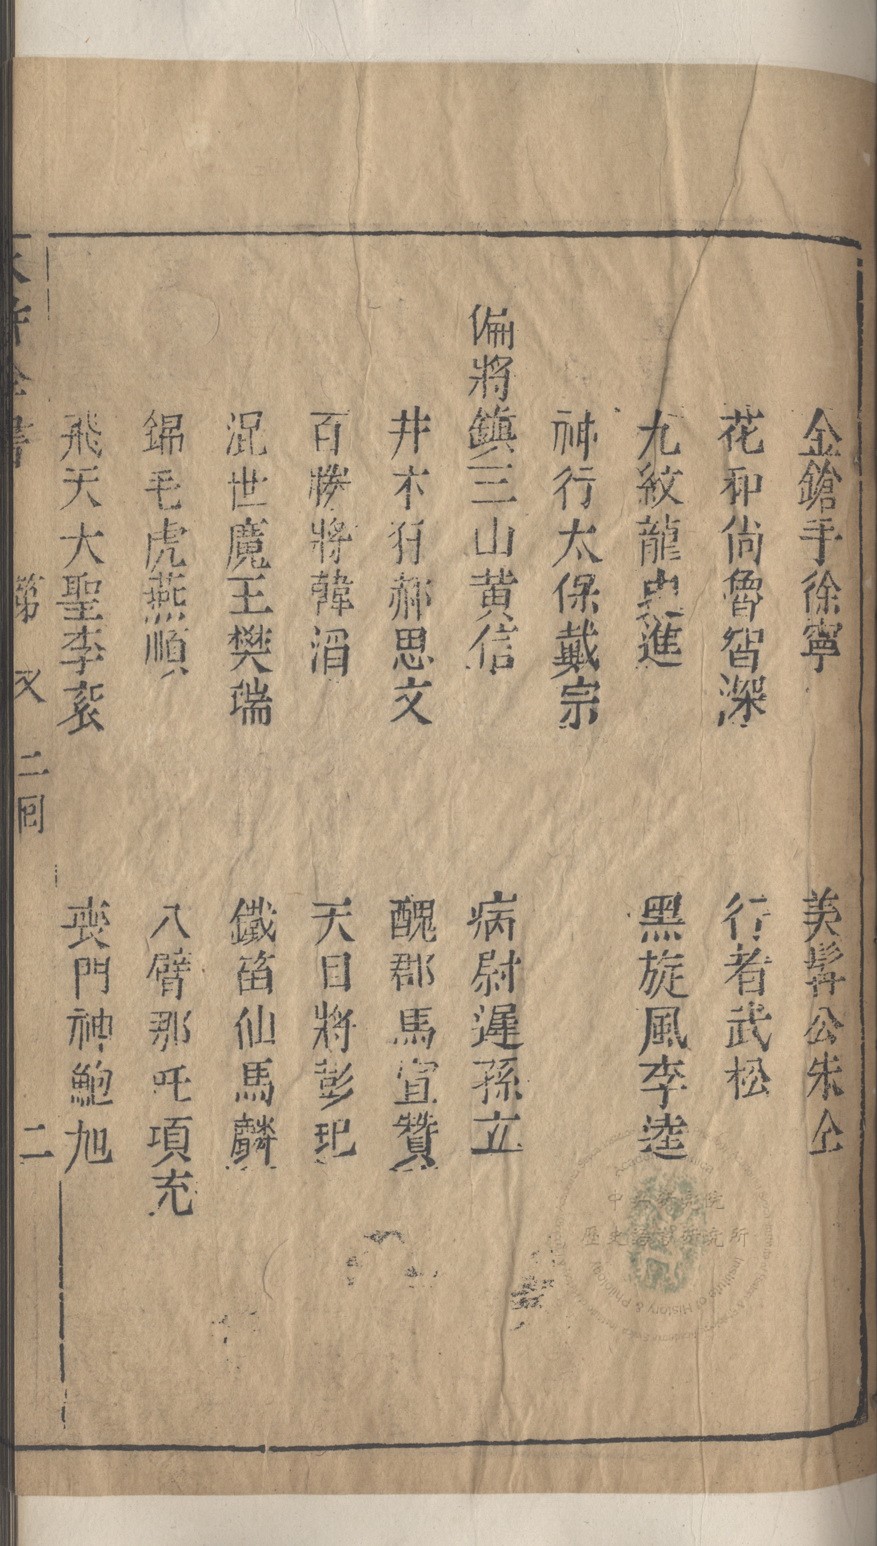 金鎗手徐寧　美髯公朱仝
花和尚魯智深　行者武松
九紋龍史進　黑旋風李逵
神行太保戴宗
偏將鎮三山黄信　病尉遲孫立
井木犴郝思文　醜郡馬宣贊
百勝將韓滔　天目將彭玘
混世魔王樊瑞　鐵笛仙馬麟
錦毛虎燕順　八臂那吒項充
飛天大聖李衮　喪門神鮑旭
水滸全書　第　又　二回　二
中央研究院
歷史語言研究所